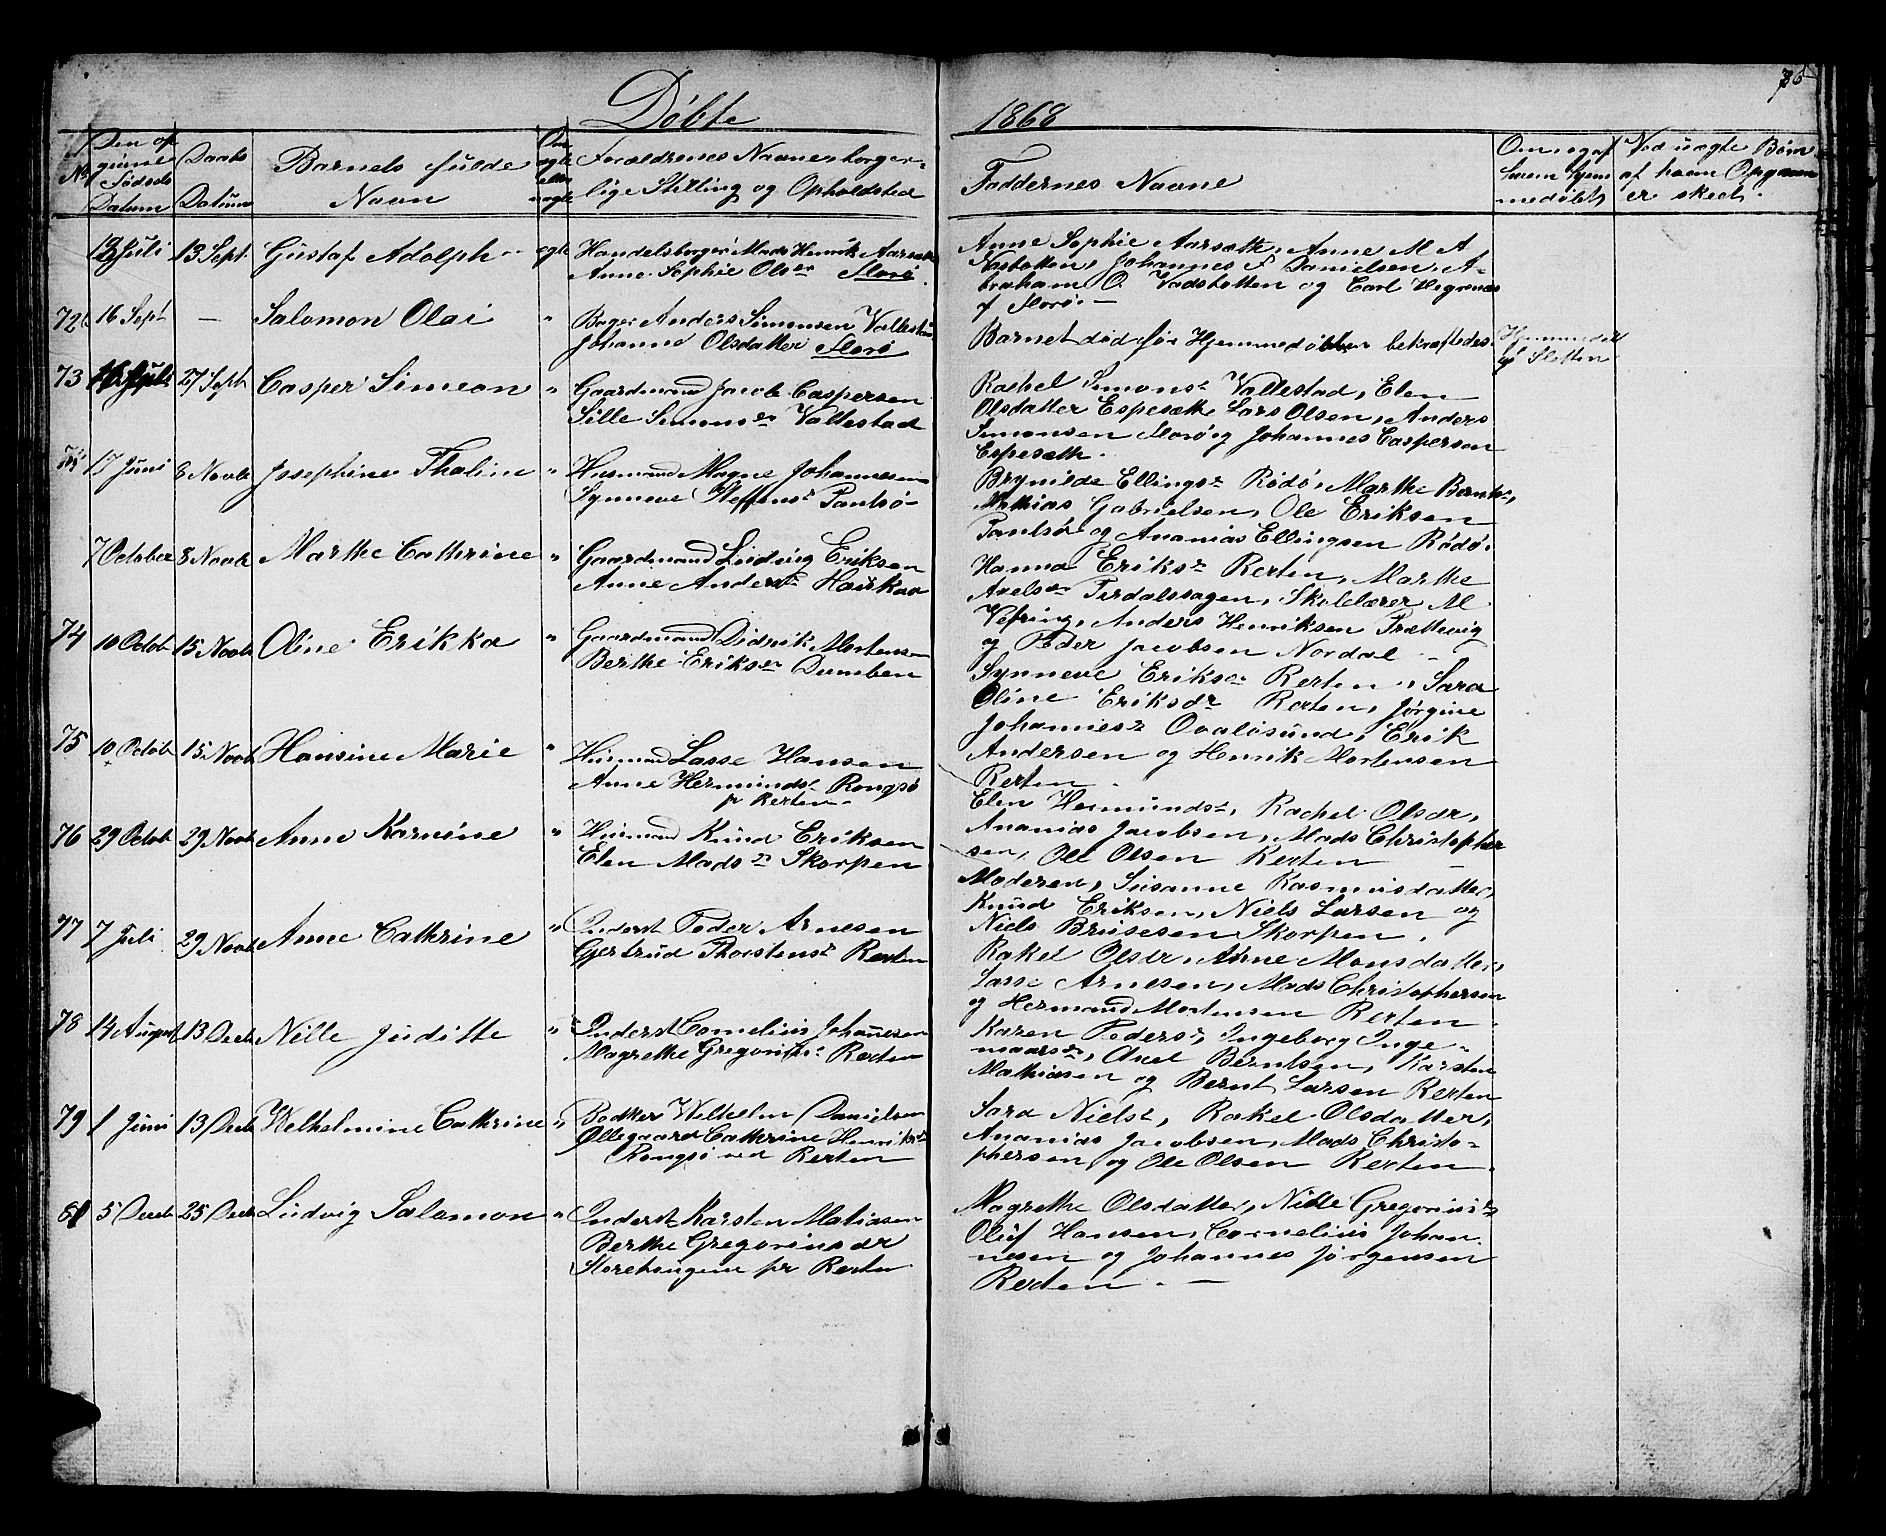 76
Døbte
1868
No
Den op
givne
Fødsels
Datum
Daabs
Datum
Barnets fulde
Navn
Om
ægte
eller
uægte
Forældrenes Navne, borger-
lige Stilling og Opholdsted
Faddernes Navne
Om og af
hvem hjem
medøbt
Ved uægte Børn
af hvem Opgaven
er skeet.
Juli 13 Sept. Gustaf Adolph egte
Handelsborger Mads Henrik
Anne Sophie Florø.
Anne Sophie Aarsæth, Anne M A
Johannes F Danielsen, A-
braham O. Vadstotten og Carl
af Florø. -
72 16 Sept — Salomon Olai "
Anders Simonsen
Johanne Olsdatter Florø
Barnet død før Hjemmedøben bekræftedes.
73 27 Sept Casper Simeon "
Gaardmand Jacob Caspersen
Sille Simonsdr Vallestad
Rachel Simonsdr Vallestad, Elen
Olsdatter Espesæth Lars Olsen, Anders
Simonsen Florø og Johannes Caspersen
Espesæth.
17 Juni 8 Novb Josephine Thaline "
Husmand Magne Johannesen
Synneve Steffensdr
Brynilde Ellingsdr Rødø, Marthe
Mathias Gabrielsen, Ole Eriksen
og Ananias Ellingsen Rødø.
7 October 8 Novb Marthe Cathrine "
Gaardmand Ludvig Eriksen
Anne Andersdr
Hanna Eriksdr Rerten, Marthe
Axelsdr Skolelærer M
Vefring, Anders Henriksen
og Peder Jacobsen Nordal -
74 10 Octob 15 Novb Oline Erikka "
Gaardmand Didrik Mortensen
Berthe Eriksdr Dumben
Synneve Eriksdr Rerten, Sara
Oline Eriksdr Rerten, Jørgine
Johannesdr Ovaløsund, Erik
Andersen og Henrik Mortensen
Rerten
75 10 Octob 15 Novb Hansine Marie "
Husmand Lasse Hansen
Anne Hermundsdr Rongsø
pr Rerten.
Elen Hermundsdr, Rachel Olsdr,
Ananias Jacobsen, Mads Christopher
sen, Ole Olsen Rerten —
76 29 Octob 29 Novb Anne Karnine "
Husmand Knud Eriksen
Elen Madsdr Skorpen
Moderen, Susanne Rasmusdatter,
Knud Eriksen, Niels Larsen og
Niels Skorpen.
77 7 Juli 29 Novb Anne Cathrine "
Inderst Peder Arnesen
Gjertrud Thorstensdr Rerten
Rakel Olsdr, Anne Monsdatter,
Lasse Arnesen, Mads Christophersen
og Hermand Mortensen Rerten.
78 14 August 13 Decb Nille Juditte "
Inderst Cornelius Johanesen
Magrethe Gregoriusdr Rerten
Karen Pedersdr, Ingeborg Inge-
maarsdr, Axel Berntsen, Karsten
Mathiasen og Bernt Larsen Rerten
79 1 Juni 13 Decb Welhelmine Cathrine "
Bødker Welhelm Danielsen
Øllegaard Cathrine Henriksdr
Rongsø ved Rerten
Sara Nielsdr, Rakel Olsdatter,
Ananias Jacobsen, Mads Christo-
phersen, og Ole Olsen Rerten.
81 5 Decb 25 Decb Ludvig Salomon "
Inderst Karsten Matiasen
Berthe Gregoriusdr
Storehaugene pr Rerten
Magrethe Olsdatter, Nille Gregoriusdr
Oluf Hansen, Cornelius Johan
nesen og Johannes Jørgensen
Rerten. —